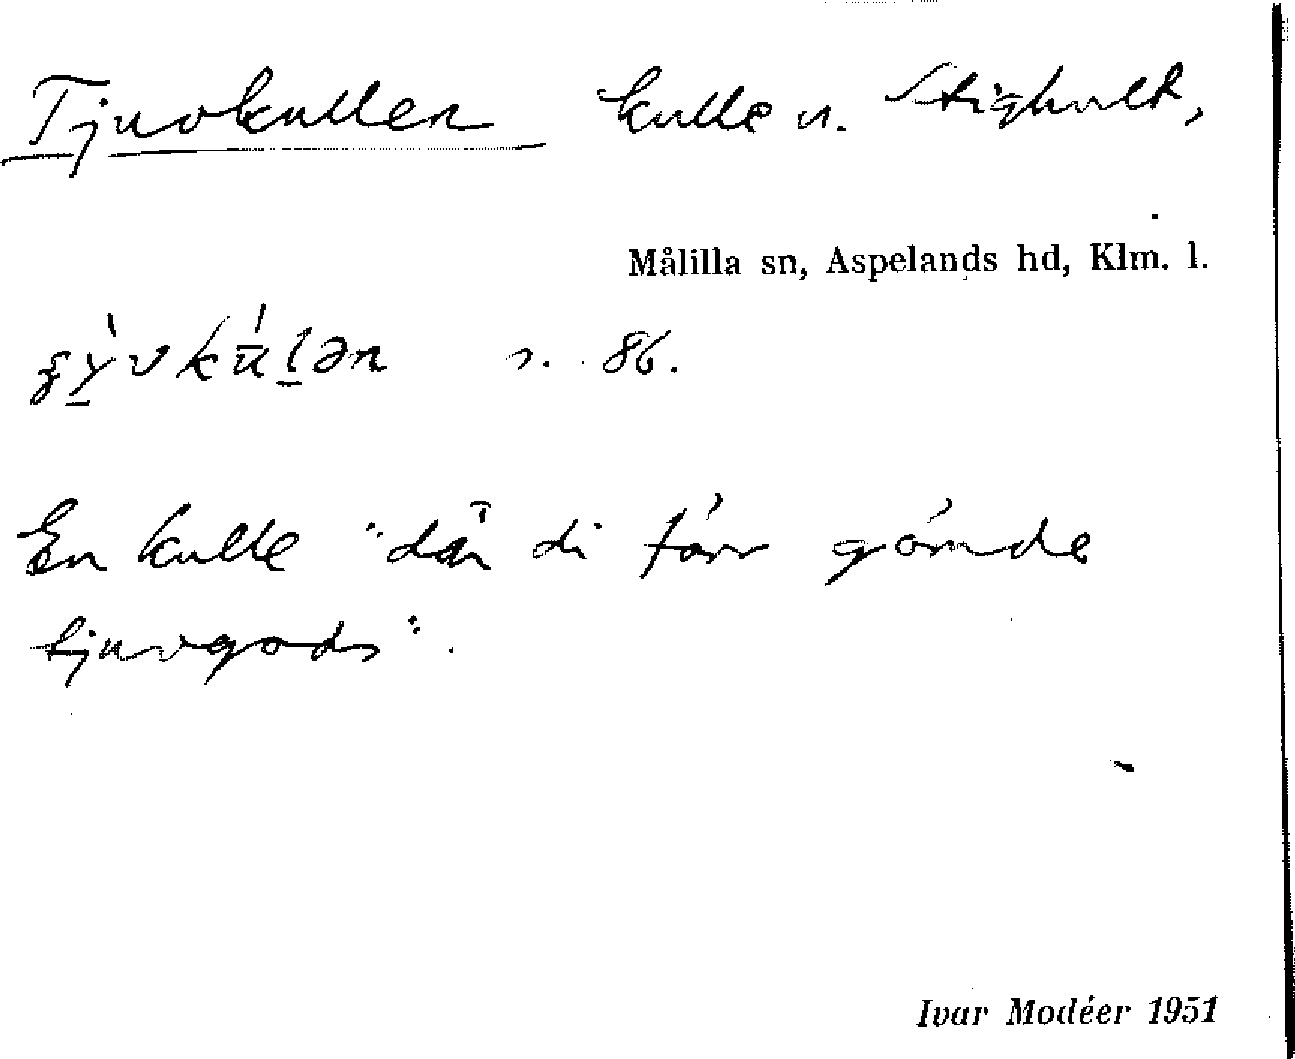 Tjuvkullen kulle n. Stighult,
Målilla sn, Aspelands hd, Klm. l.
s. 86.
En kulle "där di förr gömde
tjuvgods".
Ivar Modéer 1951